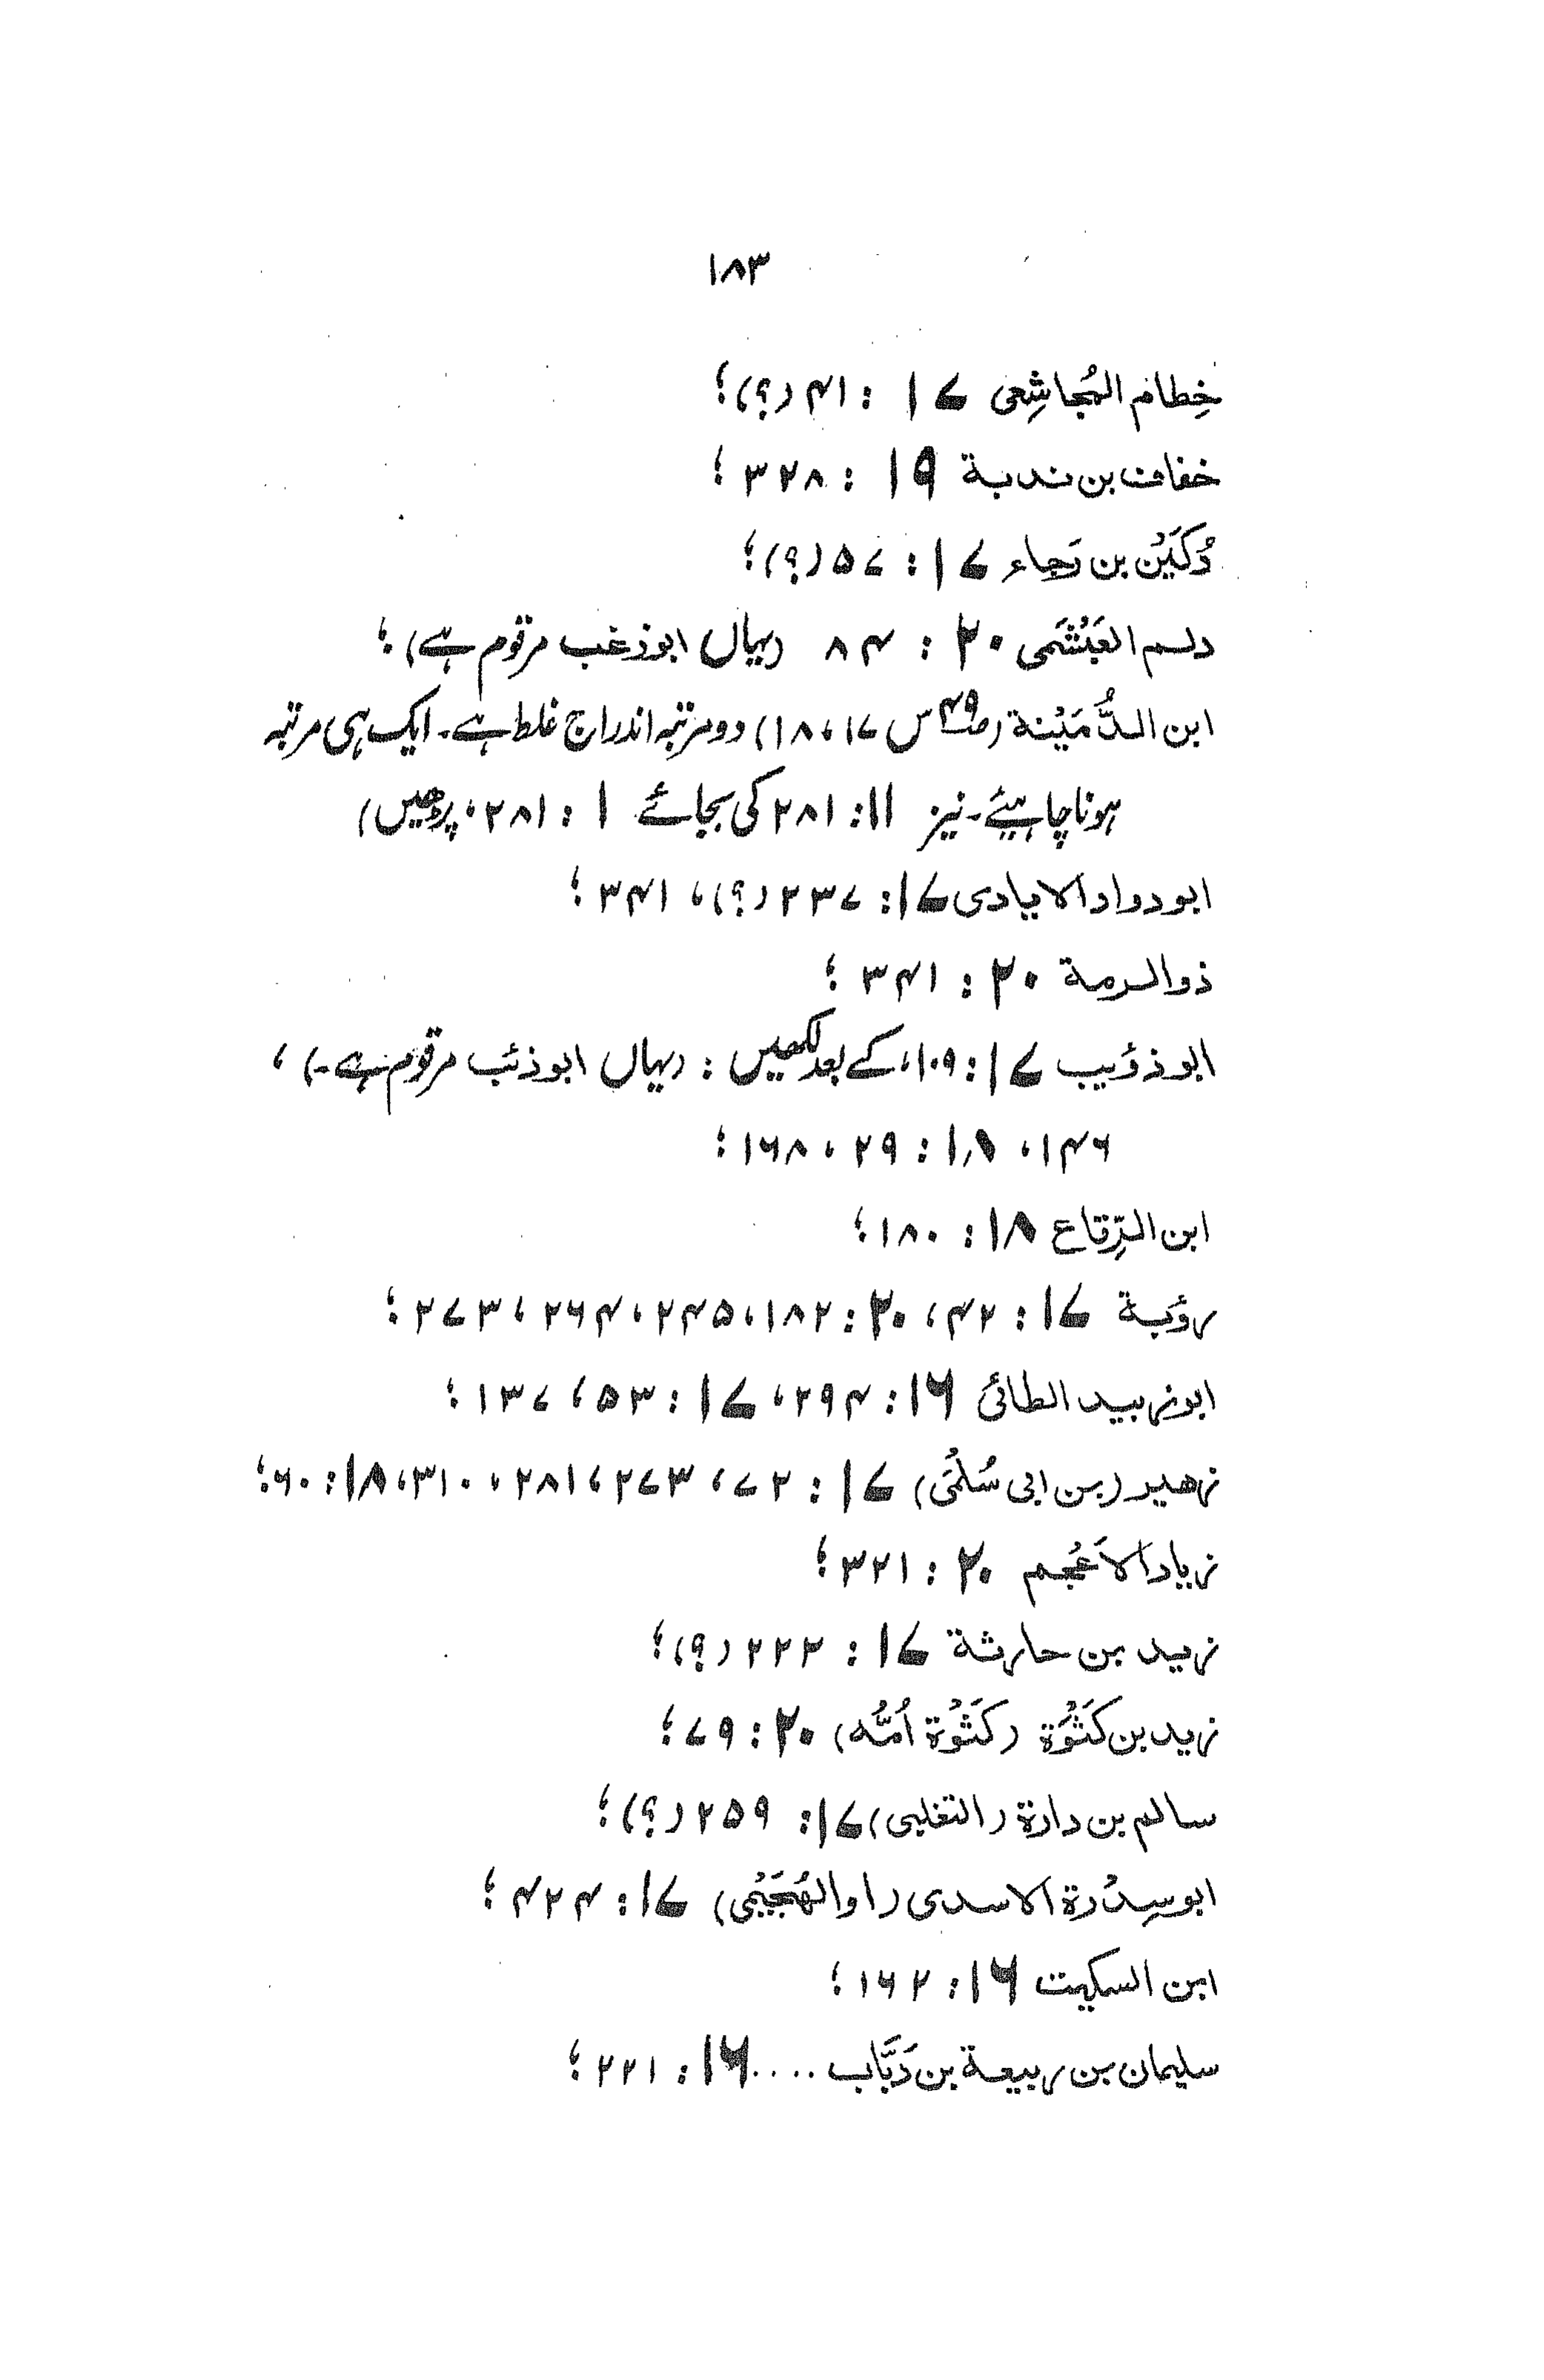 ۱۸۳
خِطام المُجاشِعی ۱۷ : ۴۱ (؟)؛
خفاف بن ندبة ۱۹ : ۳۲۸ ؛
دُکَیْن بن رَجاء ۱۷ : ۵۷ (؟)؛
دلسم العَبْشَمی ۲۰ : ۸۴ (یہاں ابوزغب مرقوم ہے)؛
ابن الدُّمَیْنة (ص۴۹ س ۱۷، ۱۸) دو مرتبہ اندراج غلط ہے۔ ایک ہی مرتبہ
ہونا چاہیئے۔ نیز ۱۱: ۲۸۱ کی بجائے ۱ : ۲۸۱، پڑھیں)
ابو دواد الایادی ۱۷: ۲۳۷ (؟)، ۳۴۱ ؛
ذوالرمة ۲۰ : ۳۴۱ ؛
ابو ذؤیب ۱۷ : ۱۰۹، کے بعد لکھیں : (یہاں ابو ذئب مرقوم ہے۔) ،
۱۴۶، ۱۸ : ۲۹ ، ۱۶۸ ؛
ابن الرِّقاع ۱۸ : ۱۸۰ ؛
رؤبة ۱۷ : ۴۲، ۲۰ : ۱۸۲، ۲۴۵، ۲۶۴، ۲۷۳ ؛
ابو زبید الطائی ۱۶ : ۲۹۴، ۱۷ : ۵۳، ۱۳۷ ؛
زهیر (بن ابی سُلْمَی) ۱۷ : ۷۲، ۲۷۳، ۲۸۱، ۳۱۰، ۱۸ : ۶۰ ؛
زیاد الاَعْجم ۲۰ : ۳۲۱ ؛
زید بن حارثة ۱۷ : ۲۲۲ (؟)؛
زید بن کَثْوَة (کَثْوَة اُمُّه) ۲۰ : ۷۹ ؛
سالم بن دارة (التغلبی) ۱۷ : ۲۵۹ (؟)؛
ابو سِدْرة الاسدی (او الهُجَیْمی) ۱۷ : ۴۲۴ ؛
ابن السکیت ۱۶ : ۱۶۲ ؛
سلیمان بن ربیعة بن دَبَّاب .... ۱۶ : ۲۲۱ ؛